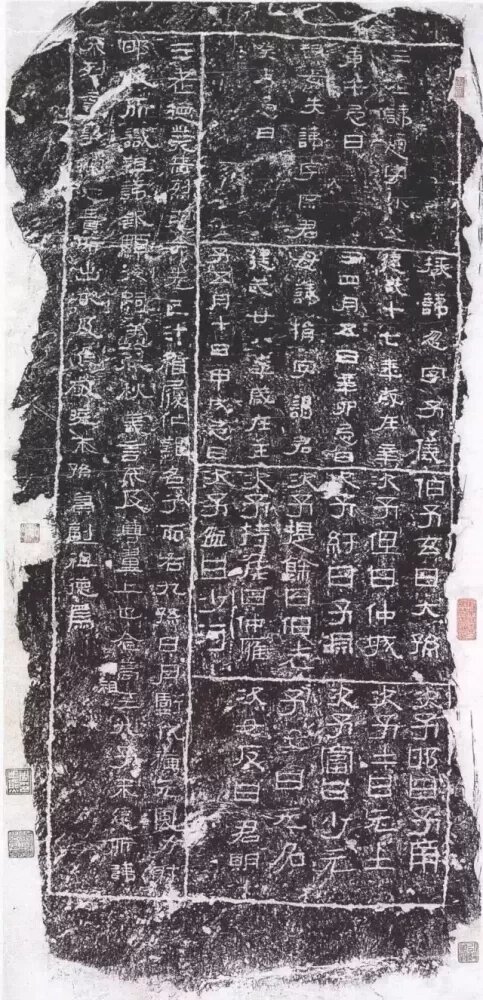 三老諱通字小父
庚午忌日
祖母失諱字宗君
癸未忌日
掾諱忽字子儀
建武十七年歲在辛
丑四月五日辛卯忌日
母諱捐字謁君
建武廿八年歲在壬
子五月十日甲戌忌日
伯子玄曰大孫
次子但曰仲城
次子紆曰子淵
次子提餘曰伯老
次子持侯曰仲雍
次子盆曰少河
次子邯曰子南
次子士曰元士
次子富曰少元
子女曰无名
次女反曰君明
三老德業赫烈克命先己汁稽履仁難名兮而右九孫日月虧代猶元風力射
邯及所識祖諱欽顯後嗣蓋春秋義言不及尊翼上也念高祖至九子未遠所諱
不列言事觸忌貴所出嚴及焦敬曉末孫冀副祖德焉